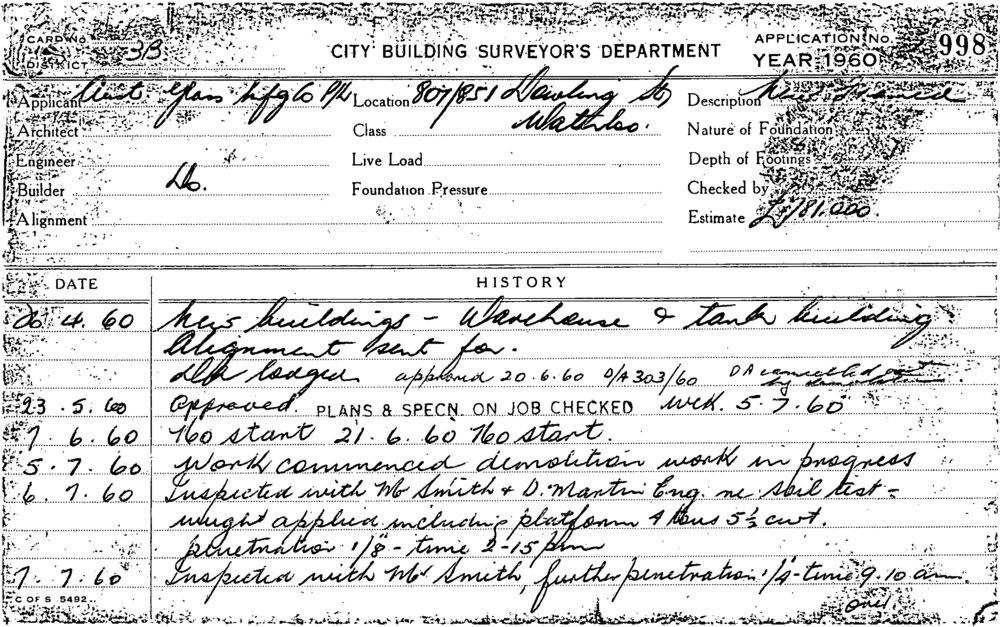 CARD No
DISTRICT 3B
CITY BUILDING SURVEYOR'S DEPARTMENT
APPLICATION No. 998
YEAR 1960
Applicant Aust Glass Mfg Co P/L Location 807/851 Dowling St Description New
Waterloo.
Architect Class Nature of Foundation
Engineer Live Load Depth of Footings
Builder Do. Foundation Pressure Checked by
Alignment Estimate £181,000.
DATE HISTORY
26. 4. 60 New buildings - Warehouse & tank building
Alignment sent for.
DA lodged approved 20.6.60 D/A 303/60 DA cancelled out
by
23. 5. 60 Approved. PLANS & SPECN. ON JOB CHECKED 5.7.60
7. 6. 60 No start 21. 6. 60 No start.
5. 7. 60 Work commenced demolition work in progress
6. 7. 60 Inspected with Mr Smith & D. Martin Eng. re soil test -
weight applied including platform 4 tons 5½ cwt.
penetration 1/8 - time 2-15 pm
7. 7. 60 Inspected with Mr Smith, further penetration 1/8 - time 9.10 am.
C OF S 5492
over